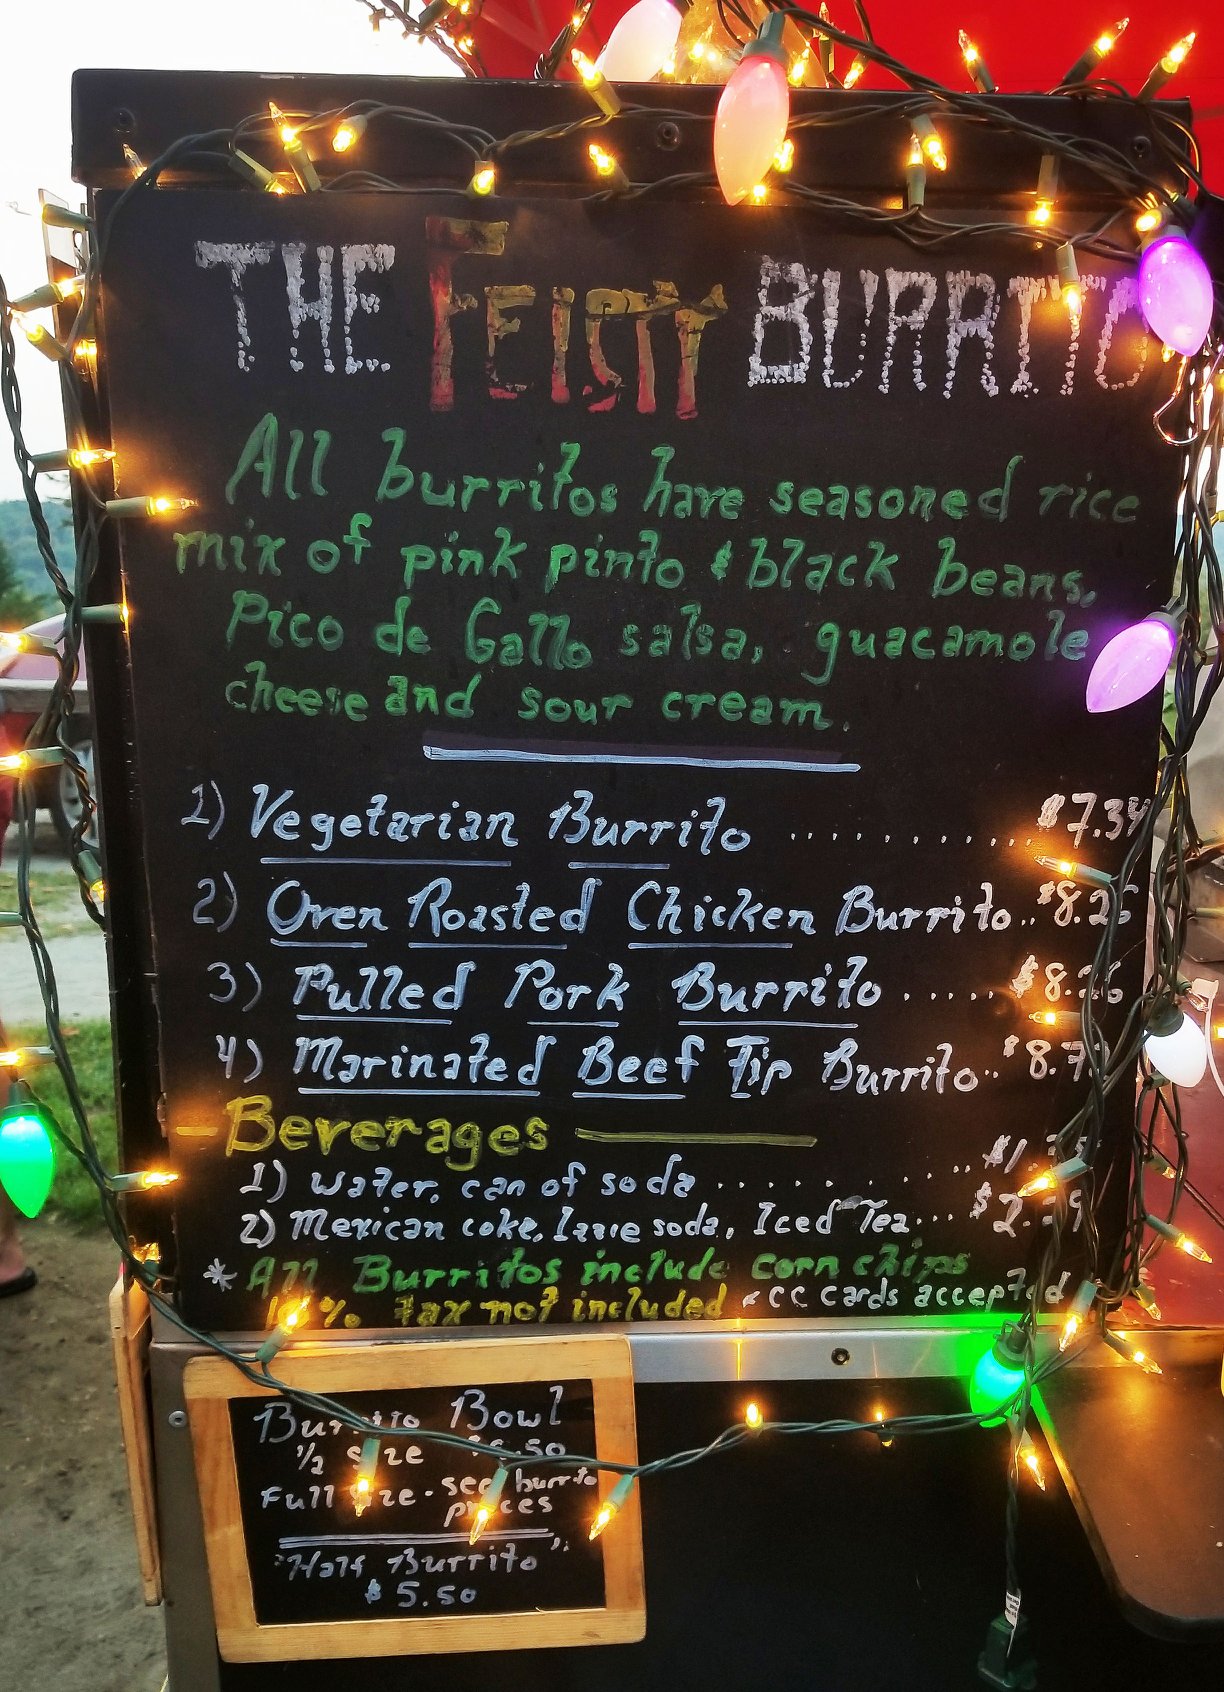 THE FEISTY BURRITO
All burritos have seasoned rice
mix of pink pinto & black beans,
Pico de Gallo salsa, guacamole
cheese and sour cream.
1) Vegetarian Burrito ............ $7.34
2) Oven Roasted Chicken Burrito.. $8.26
3) Pulled Pork Burrito ..... $8.26
4) Marinated Beef Tip Burrito..
Beverages
1) Water, can of soda ..........
2) Mexican coke, soda, Iced Tea...
* All Burritos include corn chips
tax not included CC cards accepted
Burrito Bowl
1/2 size
Full size - see burrito
prices
"Half Burrito"
$5.50